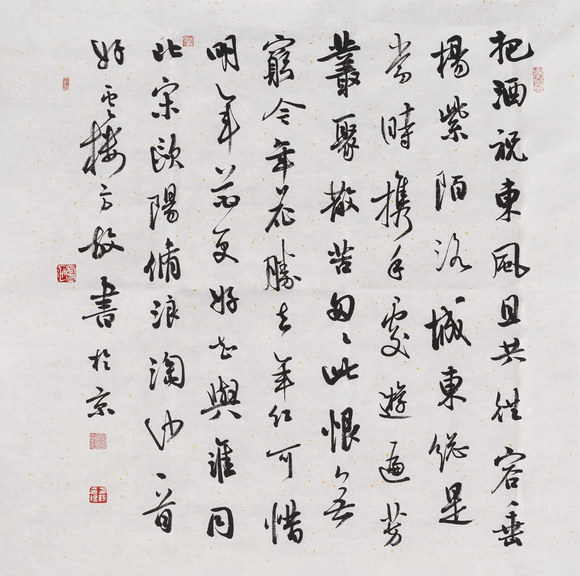 把酒祝東風且共從容垂
楊紫陌洛城東總是
當時攜手處遊遍芳
叢聚散苦匆々此恨無
窮今年花勝去年紅可惜
明年花更好知與誰同
此宋歐陽脩浪淘沙一首
好雲樓方放書於京